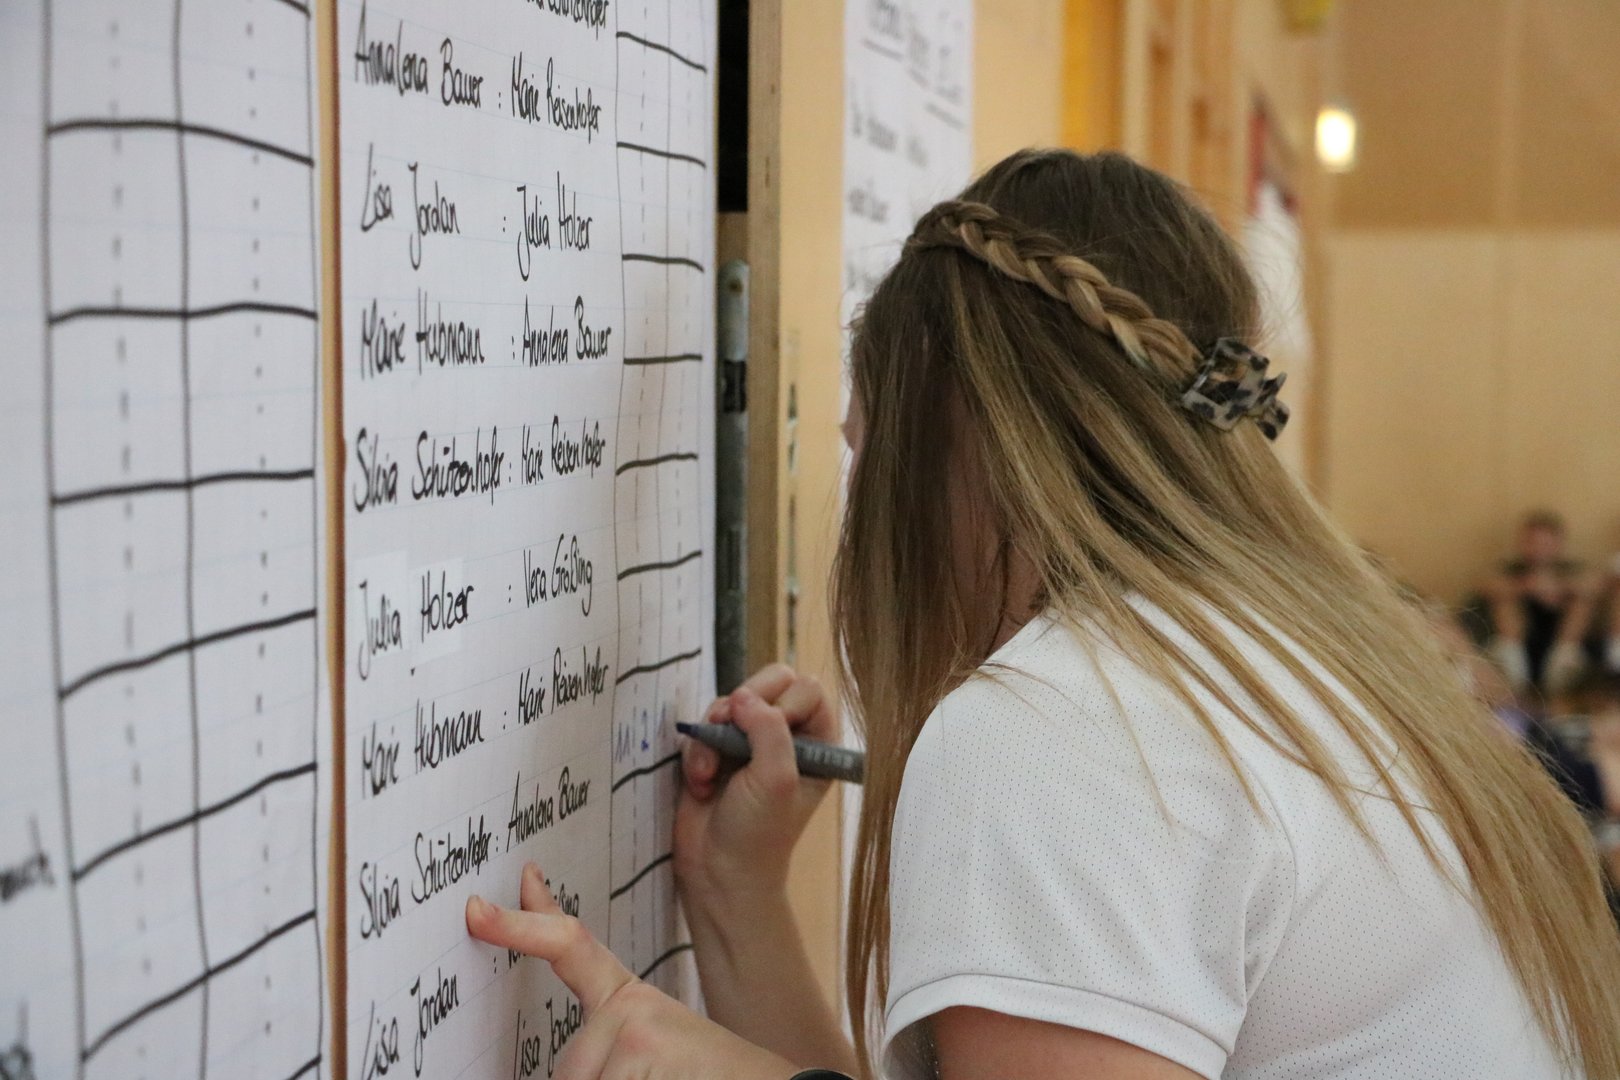 Annalena Bauer : Marie Reisenhofer
Lisa Jordan : Julia Holzer
Marie Hubmann : Annalena Bauer
Silvia Schützenhofer : Marie Reisenhofer
Julia Holzer : Vera Größing
Marie Hubmann : Marie Reisenhofer 11 2 1
Silvia Schützenhofer : Annalena Bauer
Lisa Jordan :
Lisa Jordan